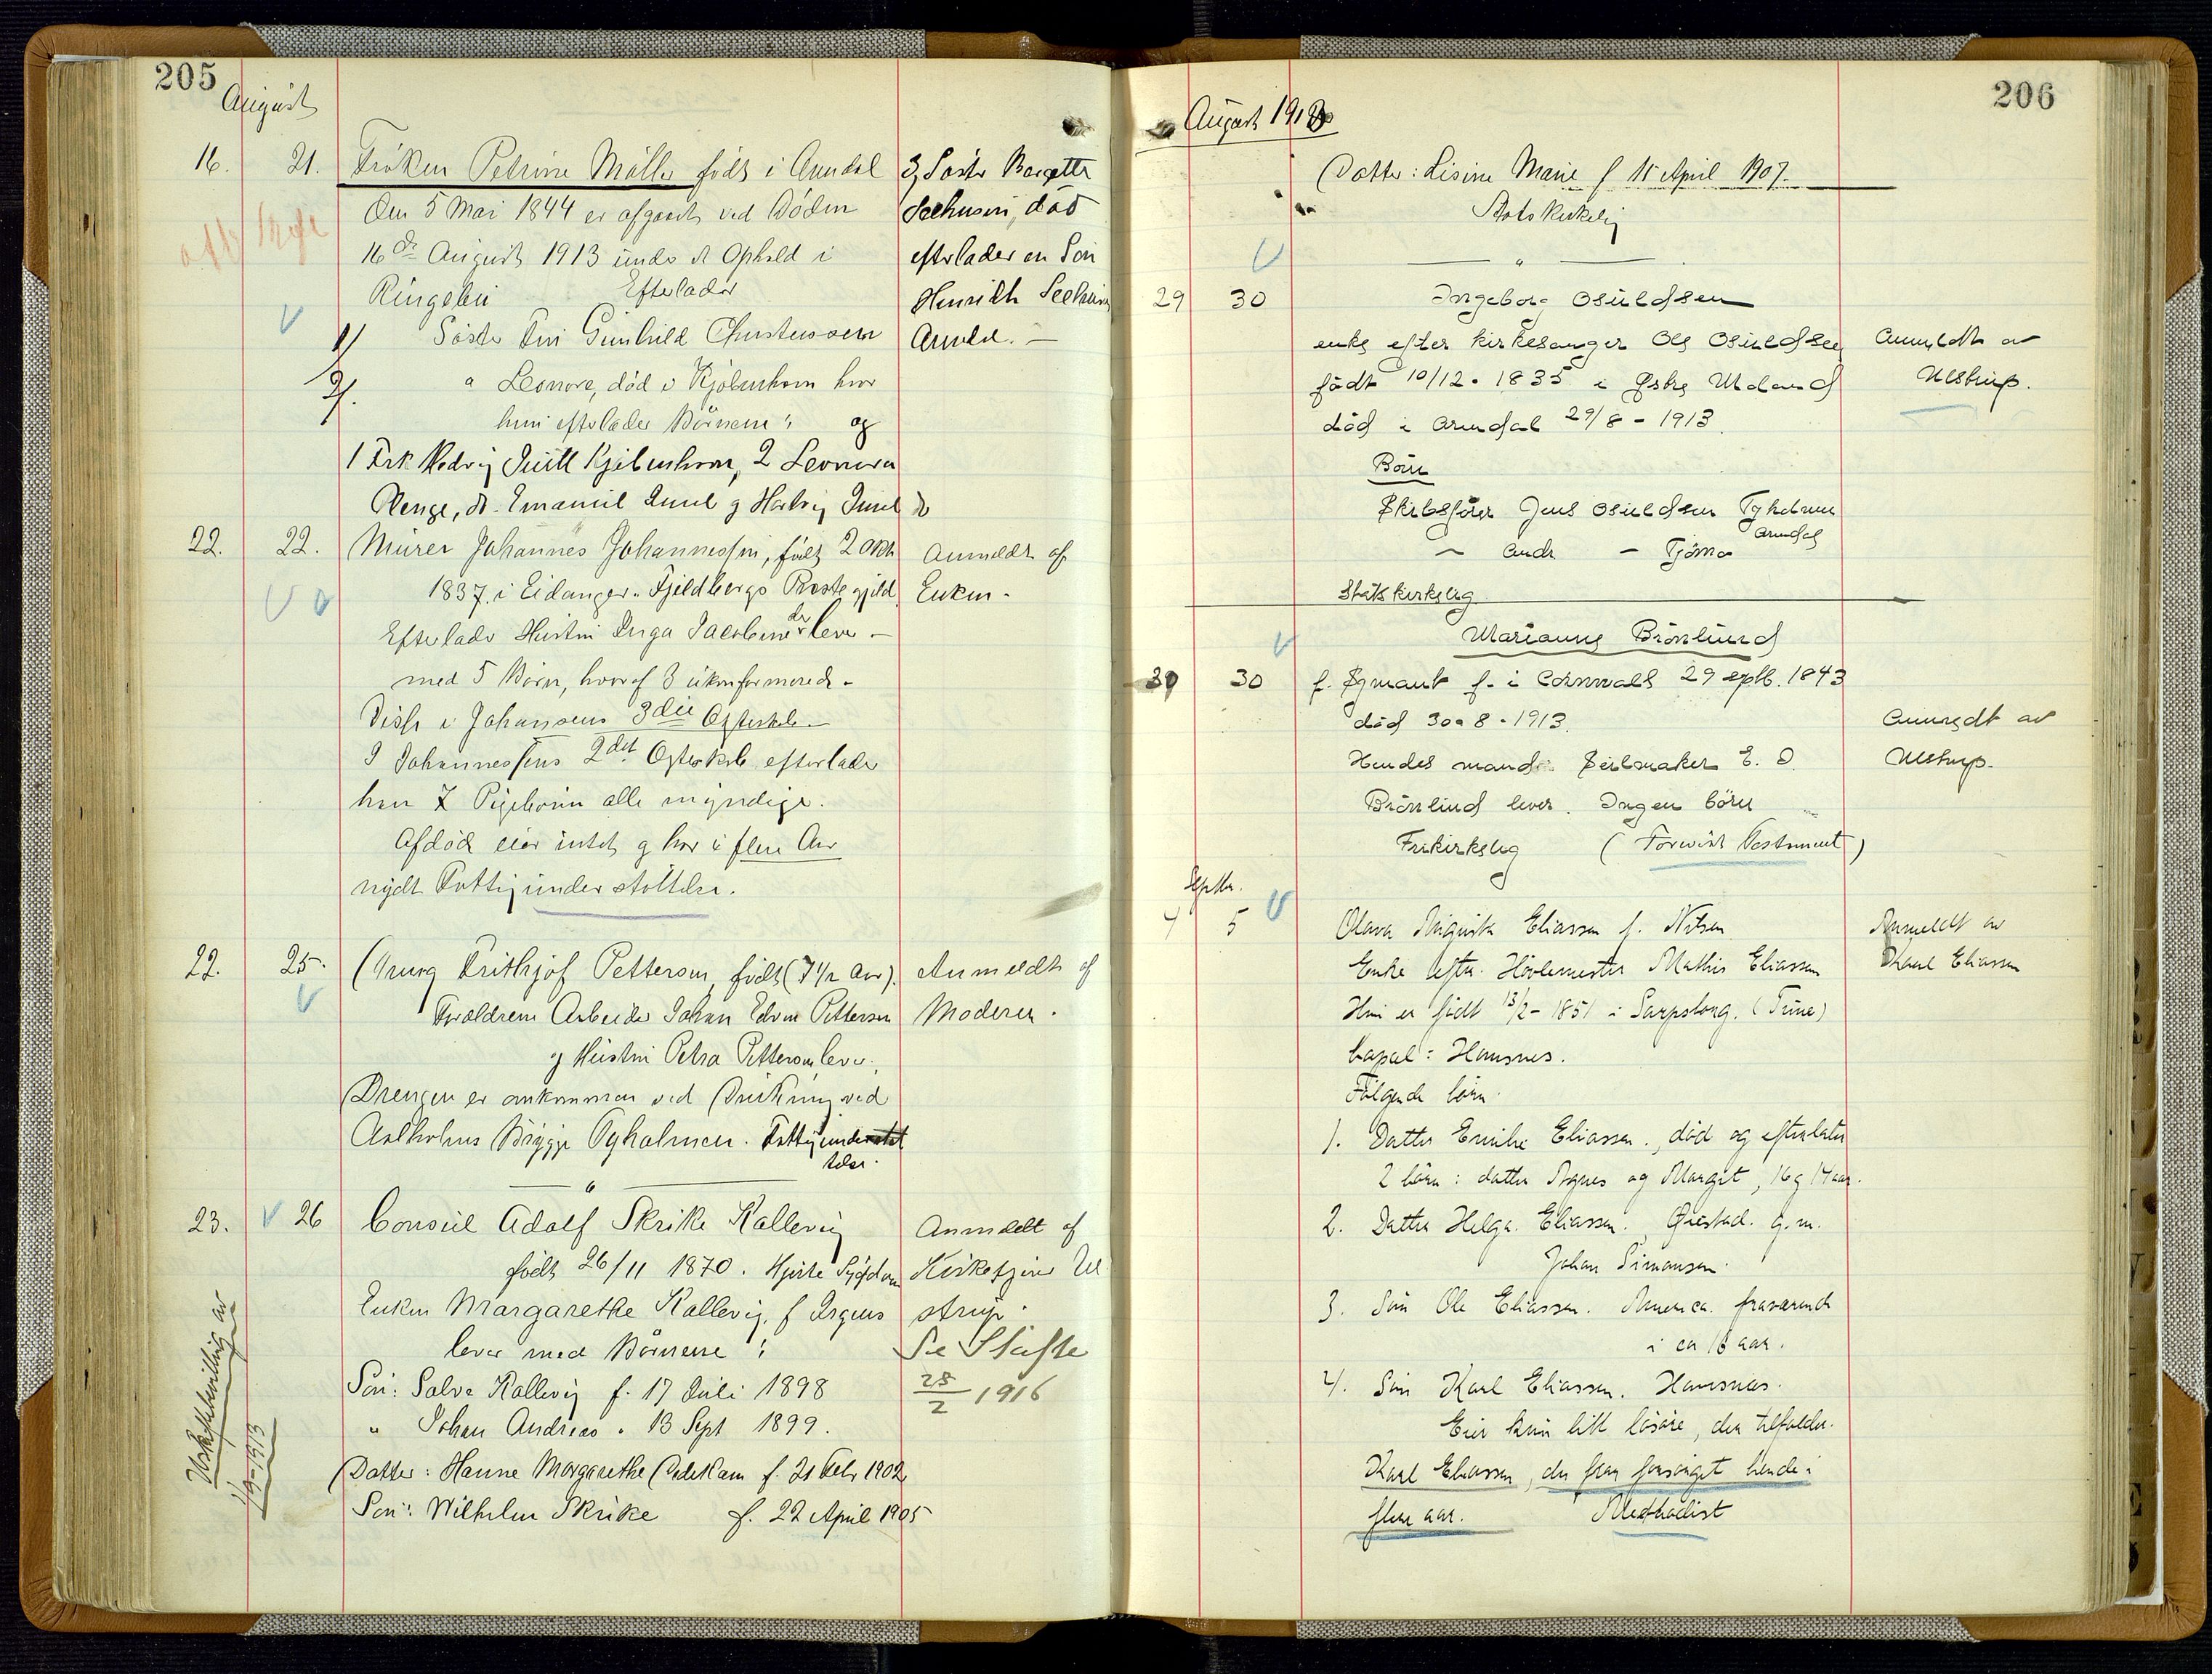 205
August
16. 21. Fröken Petrine Möller født i Arendal
Den 5 Mai 1844 er afgaaet ved Döden
16de August 1913 under et Ophold i
Ringebu Efterlader
1/ Söster Fru Gunhild Christensen
2/. " Leonore, död i Kjöbenhavn hvor
hun efterlader Börnene: og
1 Frk Hedvig Juell Kjöbenhavn, 2 Leonora
Plenge, do. Emanuel Juul og Hartvig Juul do
3, Söster Bergette
Seehusen, död
efterlader en Sön
Henrich Seehusen
Arendal. —
22. 22. Murer Johannes Johannessen, født 2 Okt
1837 i Eidanger. Fjeldbergs Præstegjeld
Efterlader Hustru Inga Jacobine der lever —
med 5 Börn, hvoraf 3 ukonfirmerede —
Disse i Johansens 3die Ægteskab —
I Johannessens 2det Ægteskab efterlader
han 7 Pigebörn alle myndige.
Afdöde eier intet og har i flere Aar
nydt Fattigunderstöttelse.
Anmeldt af
Enken.
22. 25. Georg Frithjof Petterson, födt (7 1/2 Aar).
Forældrene Arbeider Johan Edvin Petterson
og Hustru Petra Petterson lever.
Drengen er omkommen ved Drukning ved
Aalholms Brygge Tyholmen. Fattigunderstöt
telse.
Anmeldt af
Moderen.
23. 26 Consul Adolf Skrike Kallevig
født 26/11 1870. Hjerte Sygdom
Enken Margarethe Kallevig, f Irgens
lever med Börnene:
Sön: Salve Kallevig f. 17 Juli 1898
" Johan Andreas " 13 Sept 1899.
Datter: Hanne Margarethe f. 21 Febr 1902
Sön: Wilhelm Skrike f. 22 April 1905
Anmeldt af
Kirketjener Ul
strup.
Se Skifte
28/2 1916
Uskiftebevilling av
1/9-1913
206
August 1913
Datter: Lisine Marie f 15 April 1907.
Statskirkelig
29 30 Ingeborg Osuldsen
enke efter kirkesanger Ole Osuldsen
født 10/12. 1835 i Østre Moland
död i Arendal 29/8 - 1913.
Börn
Skibsfører Jens Osuldsen Tyholmen
Arendal
— Andr — Tjömø
Statskirkelig
Anmeldt av
Ulstrup.
Marianne Brönlund
30 30 f. f. i Cornwall 29 septb. 1843
död 30. 8. 1913.
Hendes mand Seilmaker E. D.
Brönlund lever. Ingen börn
Frikirkelig (Forevist Testament)
Anmeldt av
Ulstrup.
Septbr.
4 5 Olava Augusta Eliassen f. Nilsen
Enke efter Hövlemester Mathis Eliassen
Hun er født 13/2- 1851 i Sarpsborg. (Tune)
bopæl: Havsnes.
Fölgende börn:
1. Datter Emilie Eliassen, död og efterlater
2 börn: datter Agnes og Margit, 16 og 14 aar.
2. Datter Helga Eliassen, Grimstad. g.m.
Johan Simonsen.
3. Sön Ole Eliassen. America. fraværende
i ca 16 aar.
4. Sön Karl Eliassen. Havsnæs.
Eier kun litt lösöre, der tilfalder
Karl Eliassen, der har forsörget hende i
flere aar. Methodist
Anmeldt av
Karl Eliassen